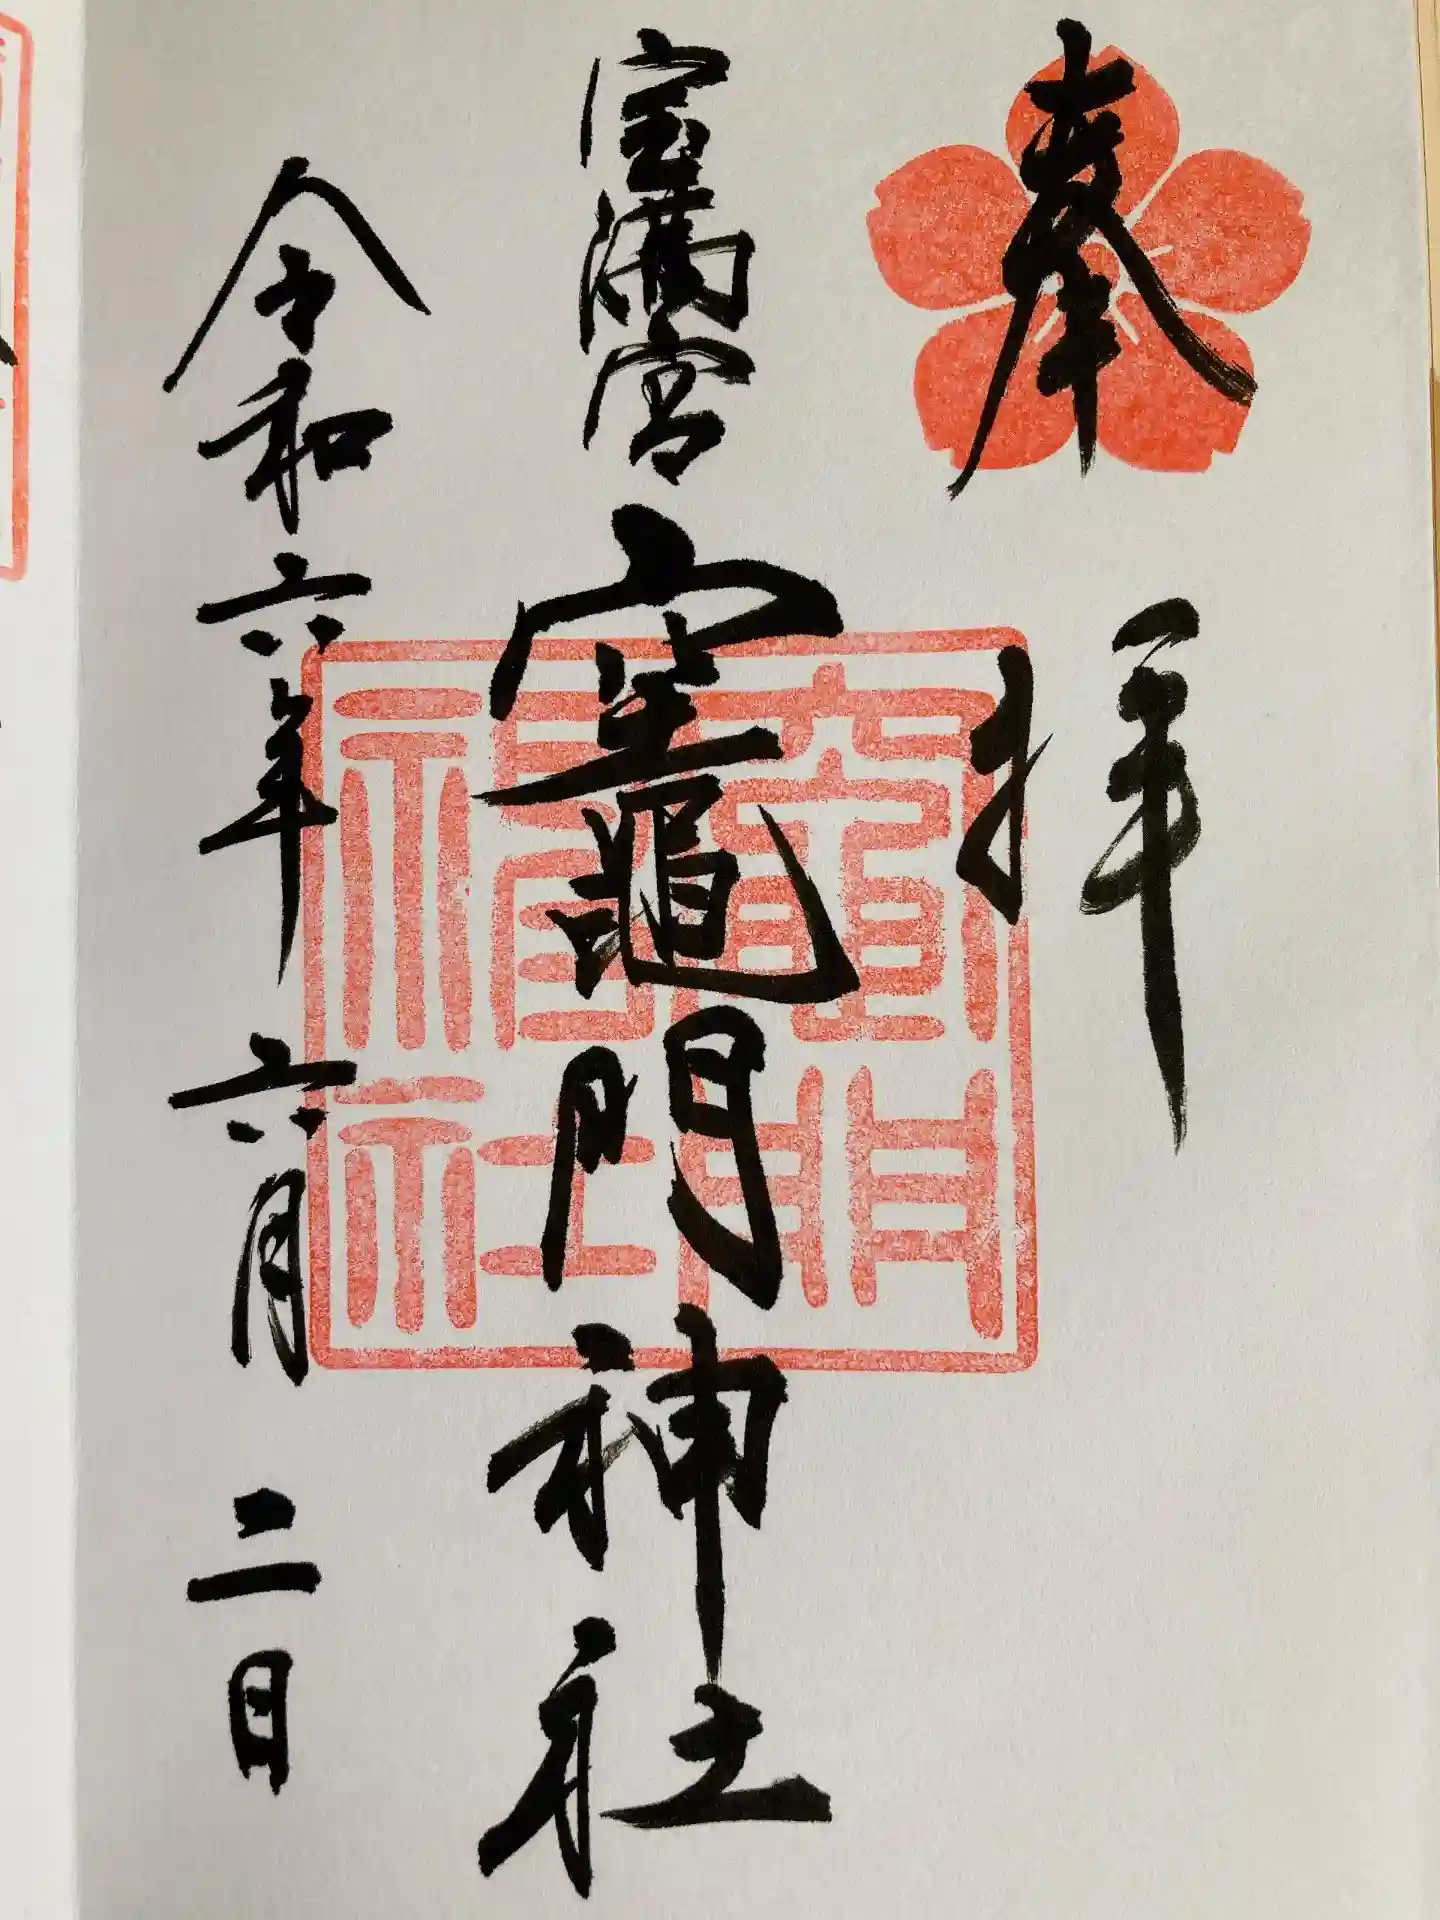 奉拝
宝満宮 竈門神社
令和六年六月二日
竈門
神社